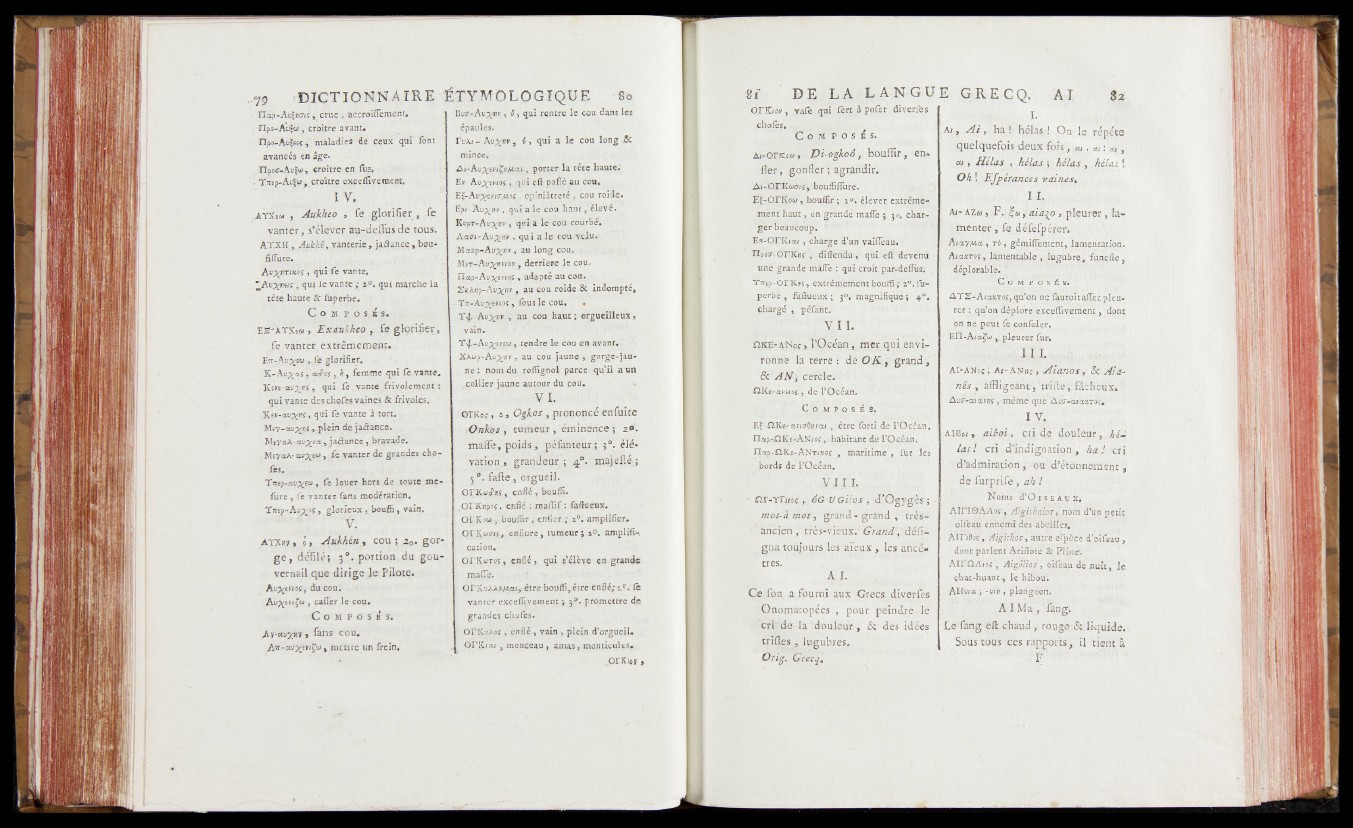 79 DICTIONNAIRE ÉTYMOLOGIQUE 80
Παρ-Αυξησις, crue, accroiſſement.
Προ-Αυξω, croître avant.
Προ-Αυξεις, maladies de ceux qui ſont
avancés en âge.
Προσ-Αυξω, croître en ſus.
Υπερ-Αυξω, croître exceſſivement.
IV.
ΑΥΧεω, Aukheo, ſe glorifier, ſe
vanter, s'élever au-deſſus de tous.
ΑΥΧΗ, Aukhê, vanterie, jactance, bou-
fiſſure.
Αυχητικος, qui ſe vante.
qui le vante; 2°. qui marche la
tête haute & ſuperbe.
COMPOSÉS.
ΕΞ-ΑΥΧεω, Exaukheo, ſe glorifier,
ſe vanter extrêmement.
Επ-Αυχεω, ſe glorifier.
femme qui ſe vante.
Κεν-αυχης, qui ſe vante frivolement:
qui vante des choſes vaines & frivoles.
Κεν-αυχης, qui ſe vante à tort.
Μεγ-αυχης, plein de jactance.
Μεγαλ-αυχια, jactance, bravade.
Μεγαλ-αυχεω, ſe vanter de grandes cho-
ſes.
Υπερ-αυχεω, ſe louer hors de toute me-
ſure, ſe vanter ſans modération.
Υπερ-Αυχος, glorieux, bouffi, vain.
V.
ΑΥΧην, ὁ, Aukhén, cou; 2°. gor-
ge, défilé; 3°. portion du gou-
vernail que dirige le Pilote.
du cou.
Αυχενιζω, caſſer le cou.
COMPOSÉS.
Αν-αυχην, ſans cou.
Απ-αυχενιζω, mettre un frein.
Βυσ-Αυχην, ὁ, qui rentre le cou dans les
épaules.
ὁ, qui a le cou long &
mince.
Δι-Αυχενιζομαι, porter la tête haute.
Εν-Αυχενιος, qui eſt paſſé au cou.
Εξ-Αυχενισμος, opiniâtreté, cou roide.
Ερι-Αυχην, qui a le cou haut, élevé.
Κυρτ-Αυχην, qui a le cou courbé.
Λασι-Αυχην, qui a le cou velu.
Μακρ-Αυχην, au long cou.
Μετ-Αυχενιον, derriere le cou.
Παρ-Αυχενιος, adapté au cou.
Σκληρ-Αυχην, au cou roide & indompté.
Υπ-Αυχενιος, ſous le cou.
Υψ-Αυχην, au cou haut; orgueilleux,
vain.
Υψ-Αυχενεω, rendre le cou vain.
Χλωρ-Αυχην, au cou jaune, gorge-jau-
ne: nom du roſſignol parce qu'il a un
collier jaune autour du cou.
VI.
ΟΓΚος, ὁ, Ogkos, prononcé enſuite
Onkos, tumeur, éminence; 2°.
maſſe, poids, péſanteur; 3°. élé-
vation, grandeur; 4°. majeſté;
5°. faſte, orgueil.
ΟΓΚωδης, enflé, bouffi.
ΟΓΚηρος, enflé: maſſif: faſtueux.
ΟΓΚοω, bouffir, enfler; 2°. amplifier.
ΟΓΚωσις, enflure, tumeur; 2°. amplifi-
cation.
ΟΓΚωτος, enflé, qui s'élève en grande
maſſe.
ΟΓΚυλλομαι, être bouffi, être enflé; 2°. ſe
vanter exceſſivement; 3°. promettre de
grandes choſes.
ΟΓΚυλος, enflé, vain, plein d'orgueil.
ΟΓΚιαι, monceau, amas, monticules.
ΟΓΚιον,
81 DE LA LANGUE GRECQ. AI 82
ΟΓΚιον, vaſe qui ſert à poſer diverſes
choſes.
COMPOSÉS.
Δι-ΟΓΚοω, Di-ogkoô, bouffir, en-
fler, gonfler; agrandir.
Δι-ΟΓΚωσις, bouffiſſure.
Εξ-ΟΓΚοω, bouffir; 2°. élever extrême-
ment haut, en grande maſſe; 3°. char-
ger beaucoup.
Επ-ΟΓΚιαι, charge d'un vaiſſeau.
Προσ-ΟΓΚης, diſtendu, qui eſt devenu
une grande maſſe: qui croît par-deſſus.
Υπερ-ΟΓΚος, extrêmement bouffi; 2°. ſu-
perbe, faſtueux; 3°. magnifique; 4°.
chargé, péſant.
VII.
ΩΚΕ-ΑΝος, l'Océan, mer qui envi-
ronne la terre: de OK, grand,
& AN, cercle.
ΩΚε-ανιος, de l'Océan.
COMPOSÉS.
être ſorti de l'Océan.
Παρ-ΩΚε-ΑΝιος, habitant de l'Océan.
Παρ-ΩΚε-ΑΝιτικος, maritime, ſur les
bords de l'Océan.
VIII.
ΩΓ-ΥΓιος, ôG-UGiios, d'Ogygès;
mot-à mot, grand-grand, très-
ancien, très-vieux. Grand, déſi-
gna toujours les aïeux, les ancê-
tres.
AI.
Ce ſon a fourni aux Grecs diverſes
Onomatopées, pour peindre le
cri de la douleur, & des idées
triſtes, lugubres.
Orig. Grecq.
I.
Αι, Ai, ha! hélas! On le répéte
quelquefois deux fois, αι. αι! αι,
αι, Hélas, hélas, hélas, hélas!
Oh! Eſpérances vaines.
II.
Αι-ΑΖω, F. ξω, aiazo, pleurer, la-
menter, ſe déſeſpérer.
Αιαγμα, το, gémiſſement, lamentation.
Αιακτος, lamentable, lugubre, funeſte,
déplorable.
COMPOSÉS.
ΔΥΣ-Αιακτος, qu'on ne ſauroit aſſez pleu-
rer: qu'on déplore exceſſivement, dont
on ne peut ſe conſoler.
ΕΠ-Αιαζω, pleurer ſur.
III.
ΑΙ-ΑΝος; Αι-ΑΝης, Aianos, & Aia-
nés, affligeant, triſte, fâcheux.
Δυσ-αιανος, même que Δυσ-αιακτος.
IV.
ΑΙΒοι, aiboi, cri de douleur, hé-
las! cri d'indignation, ha! cri
d'admiration, ou d'étonnement,
de ſurpriſe, ah!
Noms d'OISEAUX.
ΑΙΓΙΘΑΛος, Aigithalos, nom d'un petit
oiſeau ennemi des abeilles.
ΑΙΓιθος, Aigithos, autre eſpèce d'oiſeau,
dont parlent Ariſtote & Pline.
ΑΙΓΩΛιος, Aigôlios, oiſeau de nuit, le
chat-huant, le hibou.
ΑΙθυια; -υιη, plongeon.
AIMa, ſang.
Le ſang eſt chaud, rouge & liquide.
Sous tous ces rapports, il tient à
F